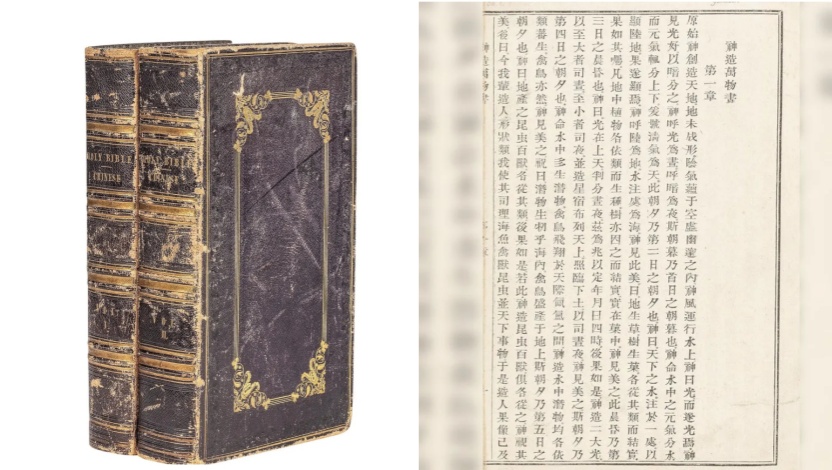 HOLY BIBLE
CHINESE
HOLY BIBLE
CHINESE
神造萬物書
第一章
原始神創造天地地未成形陰氣蘊于空處之內神風運行水上神曰光而遂光爲神
見光好以暗分之神呼光爲晝呼暗爲夜斯朝暮乃首日之朝暮也神命水中之元氣分水
而元氣輒分上下爰號清氣爲天此朝夕乃第二日之朝夕也神曰天下之水注於一處以
顯陸地果遂顯爲神呼陸爲地水注處爲海神見此美曰地生草樹生菓各從其類而結實
果如其囑凡地中植物各依類而生種樹亦因之而結實實在菓中神見美之此晨昏乃第
三日之晨昏也神曰光在上天判分晝夜茲爲兆以定年月日四時後果如是神造二大光
以至大者司晝至小者司夜並造星宿布列天上照臨下土以司晝夜神見美之斯朝夕乃
第四日之朝夕也神命水中多生潛物禽鳥飛翔於天陸氤氳之間神造水中潛物均各依
類蕃生禽鳥亦然神見美之祝曰潛物生牣乎海內禽鳥盛產于地上斯朝夕乃第五日之
朝夕也神曰地產之昆虫百獸各從其類後果如是若此神造昆虫百獸俱各從之神視其
美曰今我肇造人形狀類我使其司理海魚禽獸昆虫並天下事物于是造人果僅己及